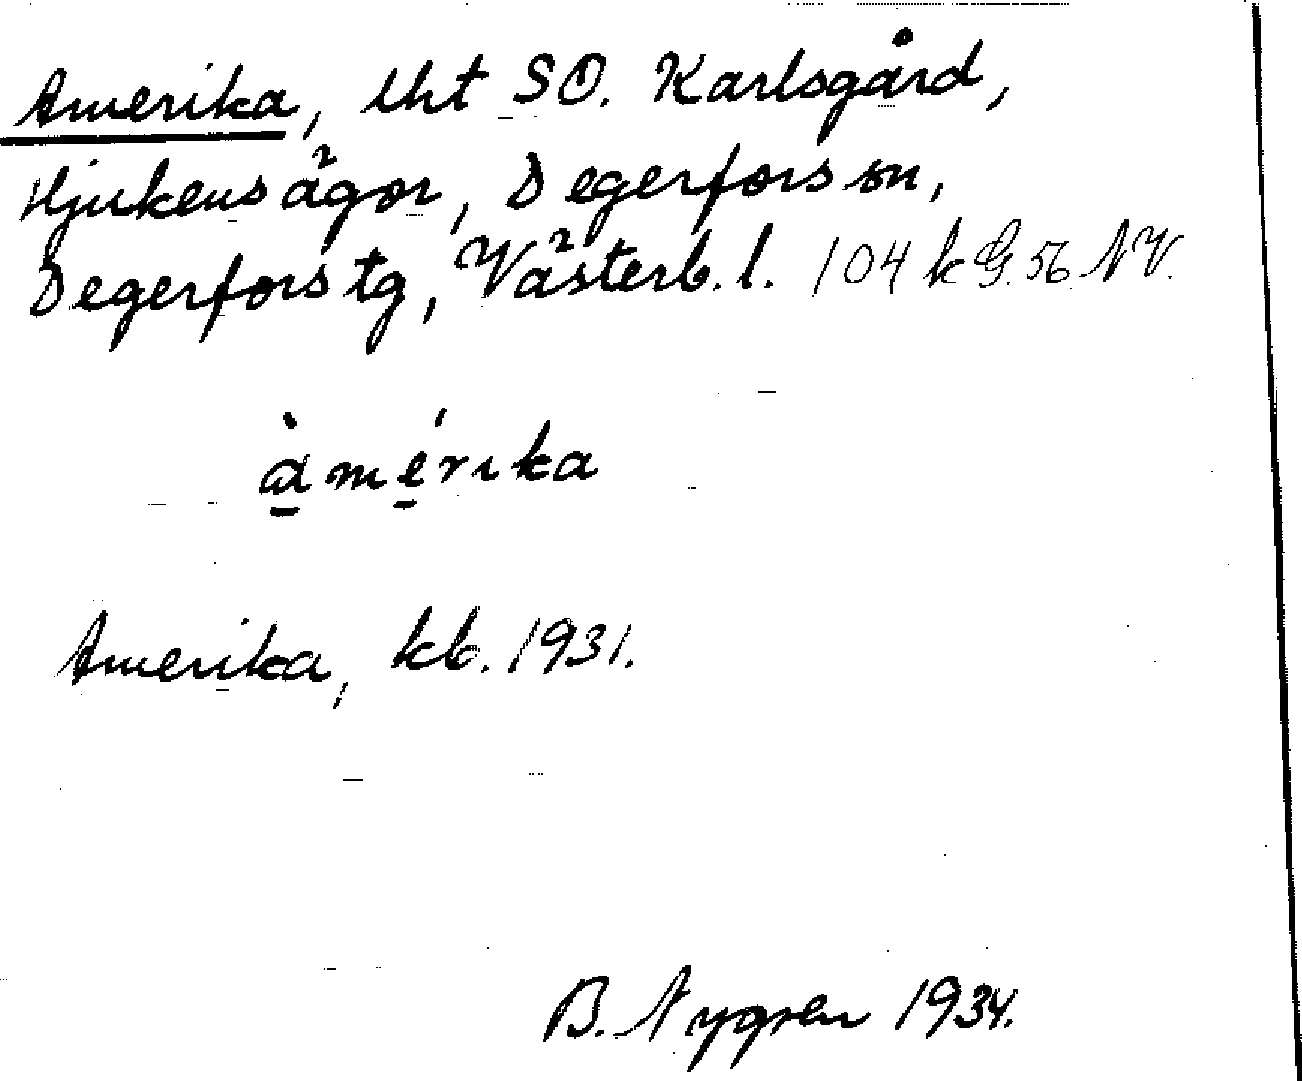 Amerika, lht SO. Karlsgård,
Hjukens ägor, Degerfors sn,
Degerfors tg, Västerb. l. 104 k G. 56 NV.
àmérika
Amerika, kb. 1931.
B. Nygren 1934.